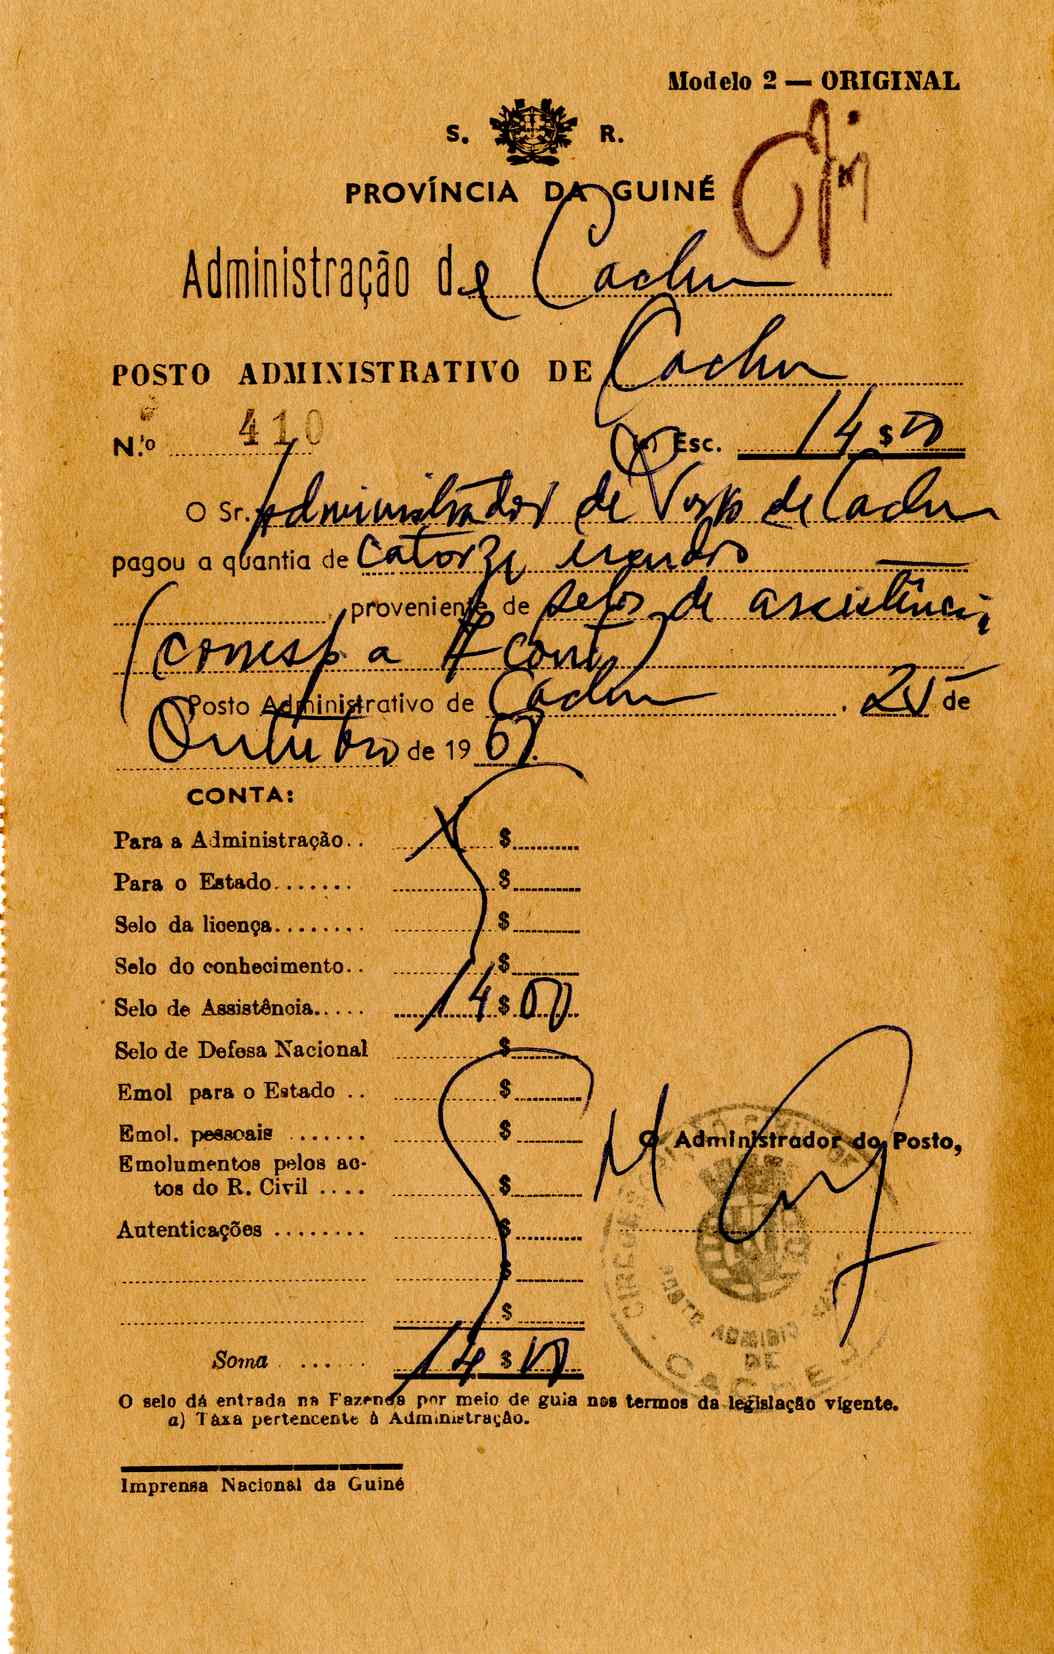 Modelo 2 — ORIGINAL
S. R.
PROVÍNCIA DA GUINÉ
Administração de Cacheu
POSTO ADMINISTRATIVO DE Cacheu
N.º 410 (a) Esc. 14$00
O Sr. Administrador de Posto de Cacheu
pagou a quantia de catorze escudos
proveniente de selos de assistência
(corresp a 7 cont.)
Posto Administrativo de Cacheu, 25 de
Outubro de 1967.
CONTA:
Para a Administração.. $
Para o Estado....... $
Selo da licença........ $
Selo do conhecimento.. $
Selo de Assistência..... 14$00
Selo de Defesa Nacional $
Emol para o Estado .. $
Emol. pessoais ....... $
O Administrador do Posto,
Emolumentos pelos ac-
tos do R. Civil .... $
Autenticações ........ $
$
$
Soma ...... 14$00
POSTO ADMINIO
DE
CACHEU
O selo dá entrada na Fazenda por meio de guia nos termos da legislação vigente.
a) Taxa pertencente à Administração.
Imprensa Nacional da Guiné